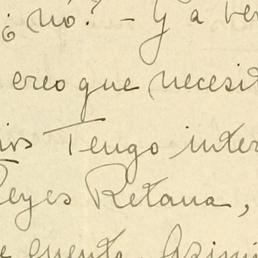 ¿no? - Y a ver
creo que necesit
ios Tengo inter
Reyes Retana,
e cuenta. Asimi